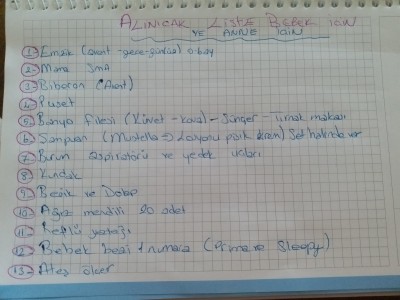 ALINICAK LİSTE BEBEK İÇİN
VE ANNE İÇİN
1- Emzik (avent -gece-gündüz) 0-6ay
2- Mama SMA
3- Biberon (Avent)
4- Puset
5- Banyo filesi (Küvet -kova) - Sünger - Tırnak makası
6- Şampuan (Mustella => Losyonu pişik kremi) Set halinde var
7- Burun aspiratörü ve yedek uçları
8- Kundak
9- Beşik ve Dolap
10- Ağız mendili 20 adet
11- yatağı
12- Bebek bezi 1 numara (Prima ve Sleepy)
13- Ateş ölçer